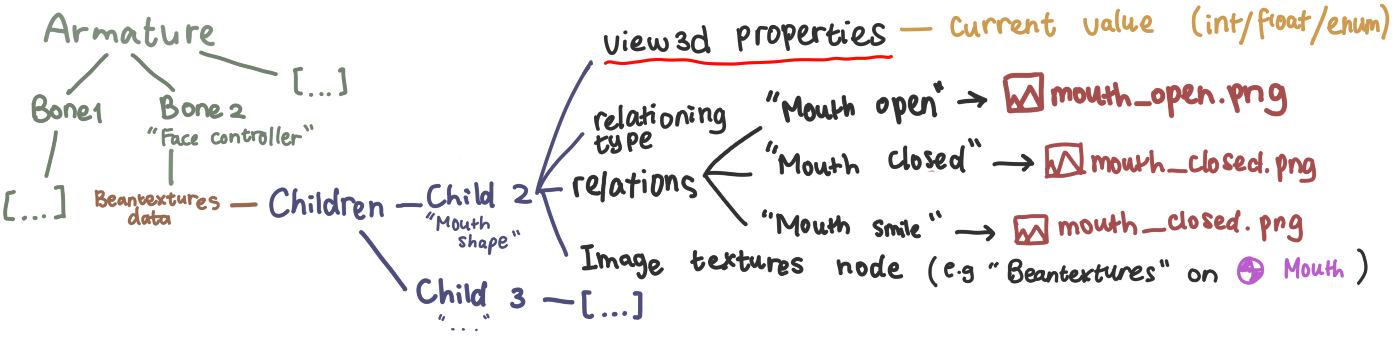 Armature
Bone1
Bone 2
"Face controller"
[...]
[...]
Beantextures
data
Children
Child 2
"Mouth
shape"
Child 3
"..."
[...]
view3d properties
current value (int/float/enum)
relationing
type
relations
"Mouth open"
mouth_open.png
"Mouth closed"
mouth_closed.png
"Mouth smile"
mouth_closed.png
Image textures node (e.g "Beantextures" on Mouth)